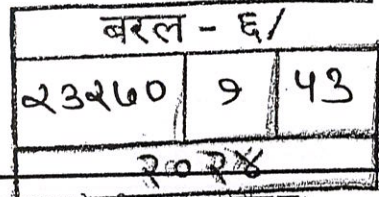 बरल - ६/
२३२७० १ ५३
२०२४